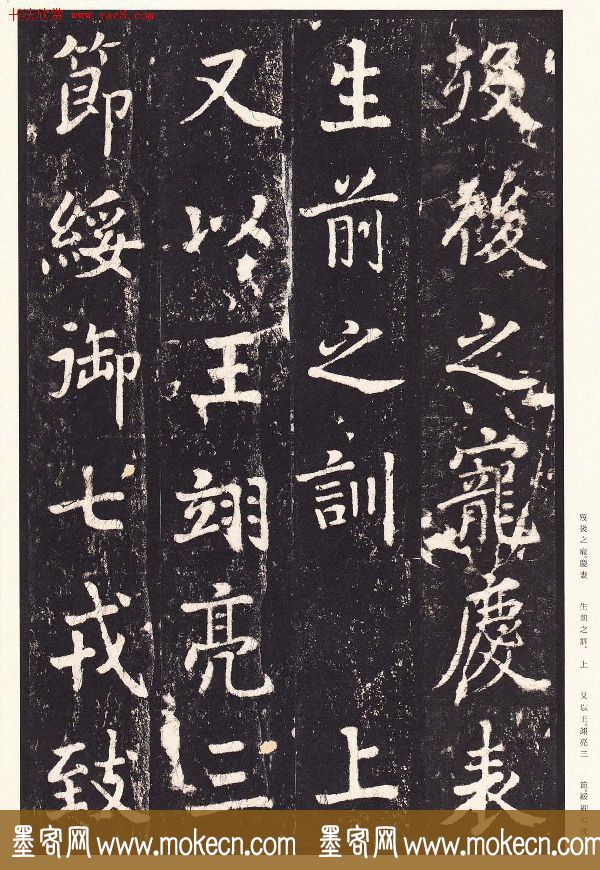 书法欣赏 www.yac8.com
歿後之寵慶表
生前之訓 上
又以王翊亮三
節綏御七戎致
歿後之寵。慶表 生前之訓。上 又以王。翊亮三 節。綏御七戎
墨客网 www.mokecn.com 墨客网 www.mokecn.com